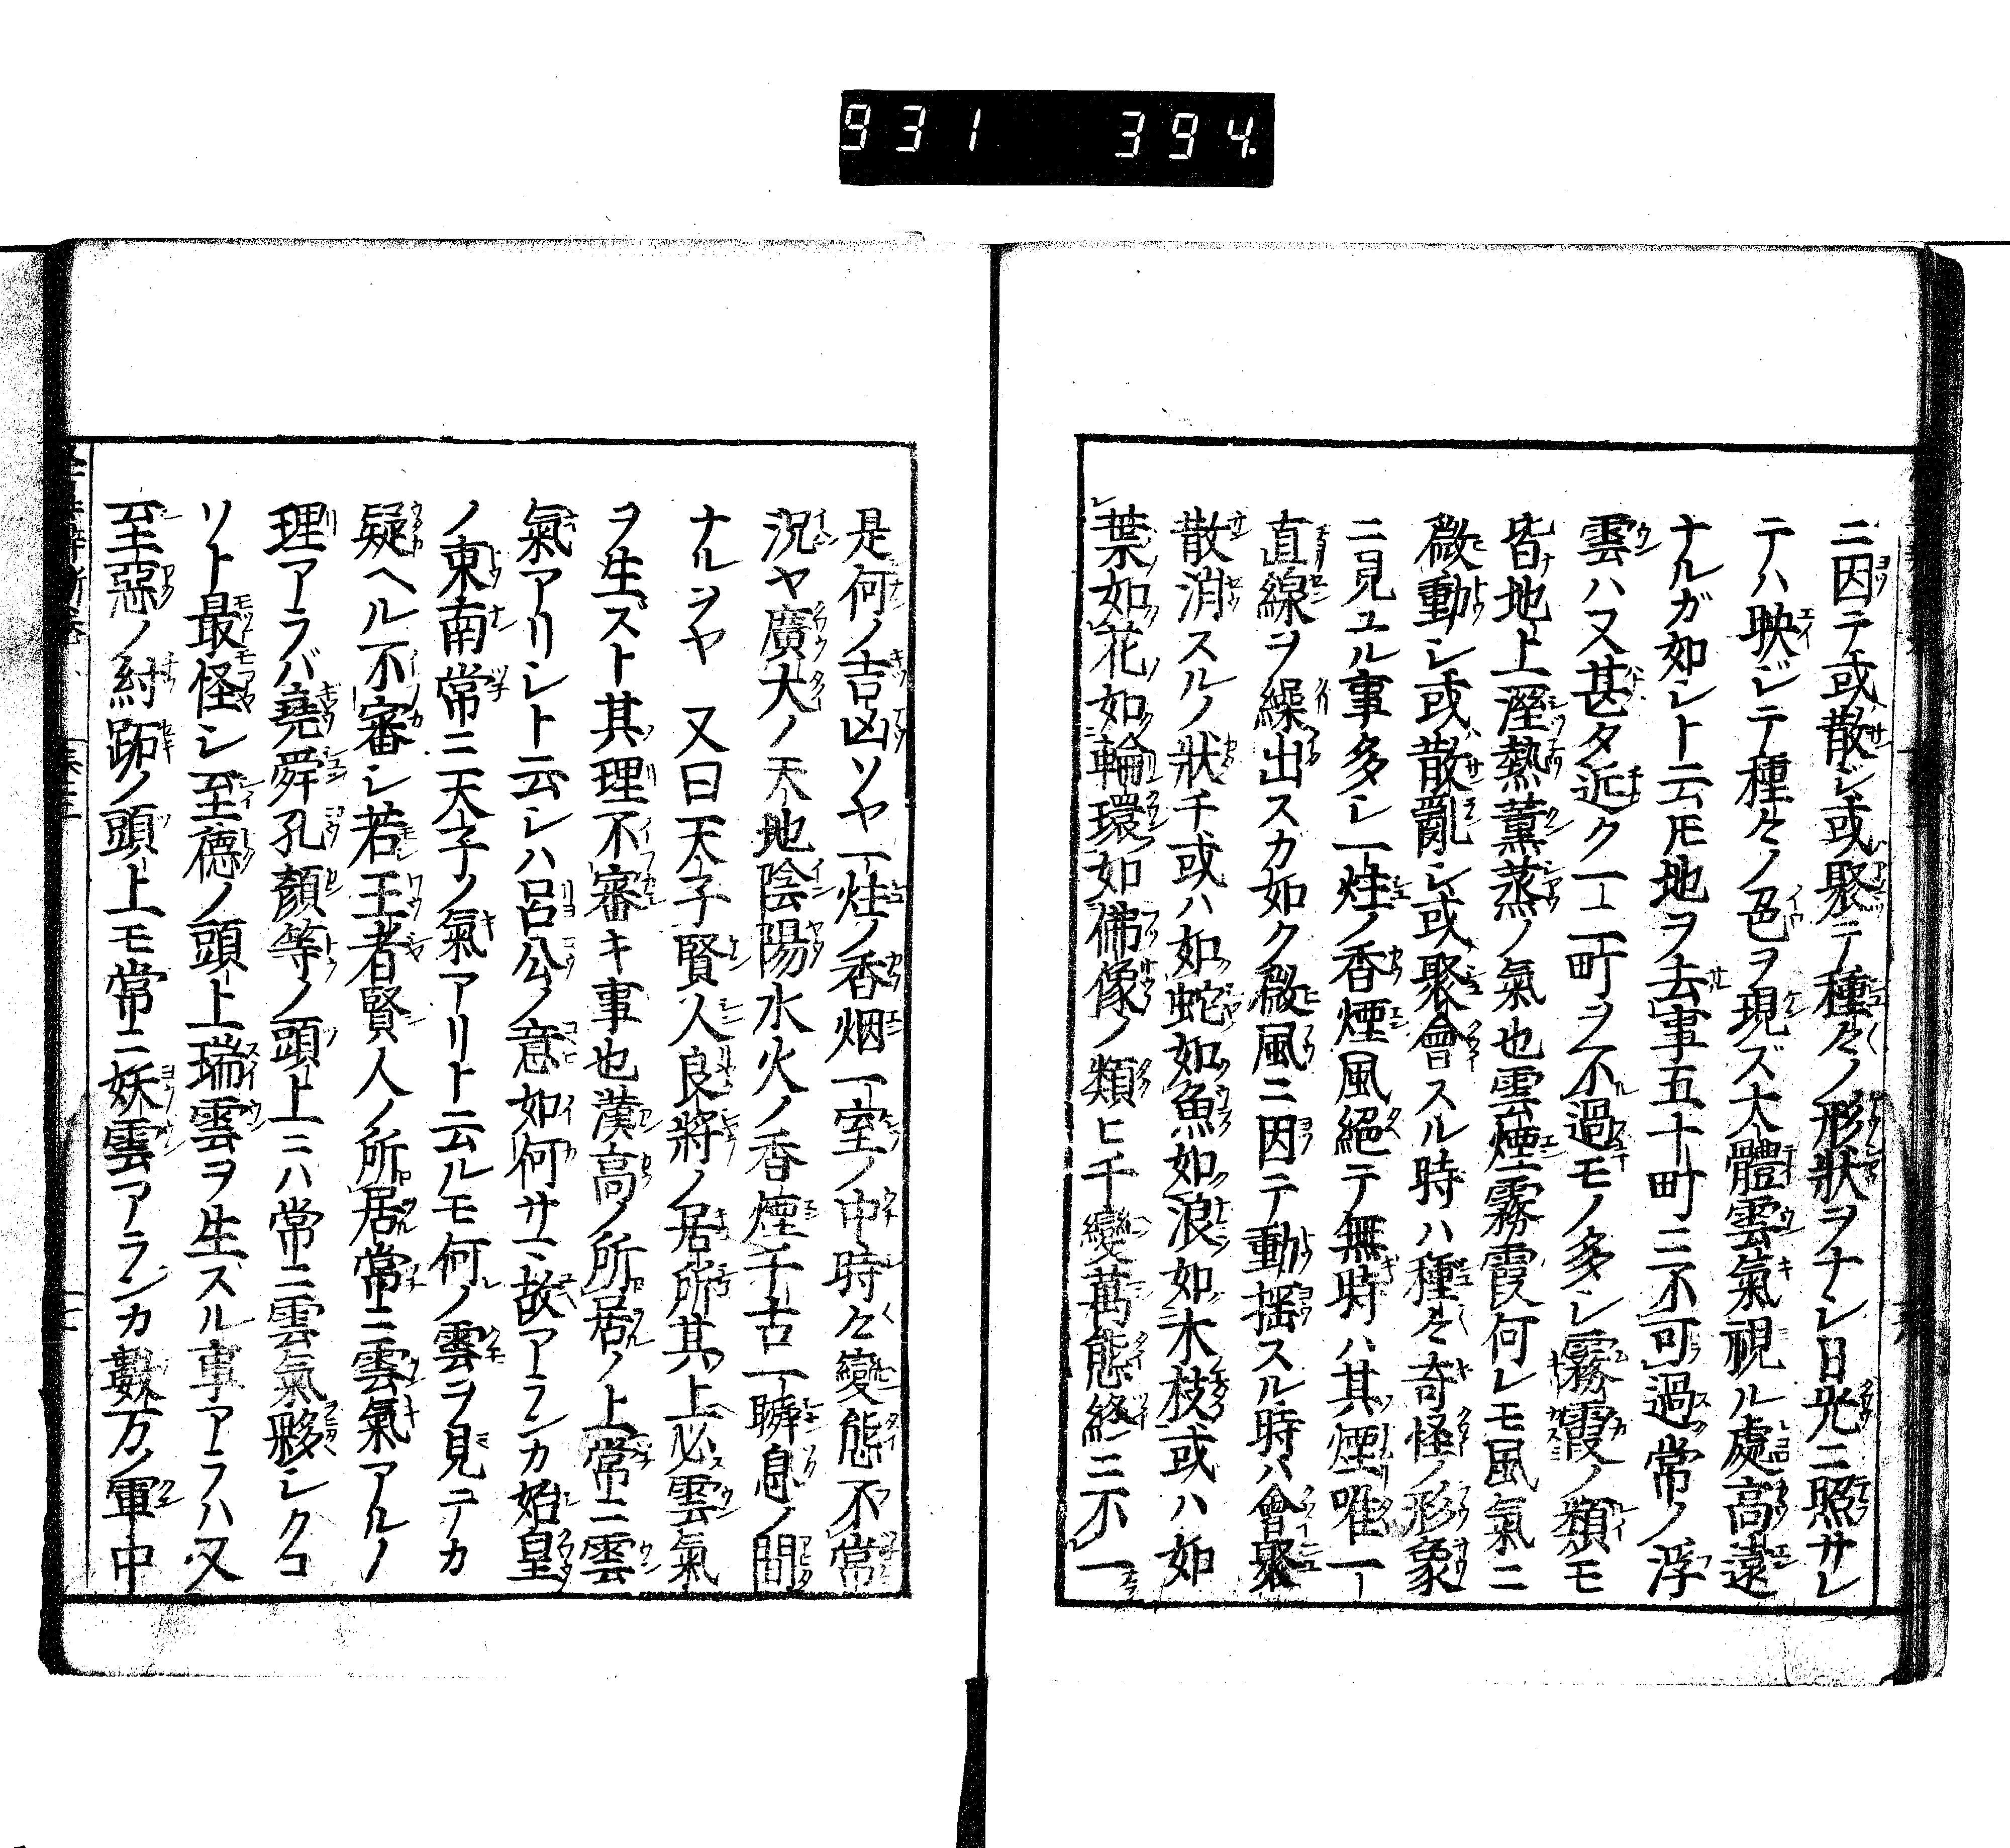 931 394
ニ因テ或散ジ或聚テ種々ノ形狀ヲナシ日光ニ照サレ
テハ映ジテ種々ノ色ヲ現ズ大體雲氣視ル處高遠
ナルガ如シト云𪜈地ヲ去事五十町ニ不可過常ノ浮
雲ハ又甚タ近ク一二町ヲ不過モノ多シ霧霞ノ類モ
皆地上溼熱薰蒸ノ氣也雲煙霧霞何レモ風氣ニ
微動シ或散亂シ或聚會スル時ハ種々奇怪ノ形象
ニ見ユル事多シ一炷ノ香煙風絕テ無時ハ其煙唯一
直線ヲ繰出スカ如ク微風ニ因テ動搖スル時ハ會聚
散消スルノ狀チ或ハ如蛇如魚如浪如木枝或ハ如
葉如花如輪環如佛像ノ類ヒ千變萬態終ニ不一
是何ノ吉凶ソヤ一炷ノ香烟一室ノ中時々變態不常
況ヤ廣大ノ天地陰陽水火ノ香煙千古一瞬息ノ間
ナルヲヤ 又曰天子賢人良將ノ居所其上必雲氣
ヲ生スト其理不審キ事也漢高ノ所居ノ上常ニ雲
氣アリシト云シハ呂公ノ意如何サマ故アランカ始皇
ノ東南常ニ天子ノ氣アリト云ルモ何ノ雲ヲ見テカ
疑ヘル不審シ若王者賢人ノ所居常ニ雲氣アルノ
理アラバ堯舜孔顏等ノ頭上ニハ常ニ雲氣夥シクコ
ソト最怪シ至德ノ頭上瑞雲ヲ生ズル事アラハ又
至惡ノ紂跖ノ頭上モ常ニ妖雲アランカ數万ノ軍中